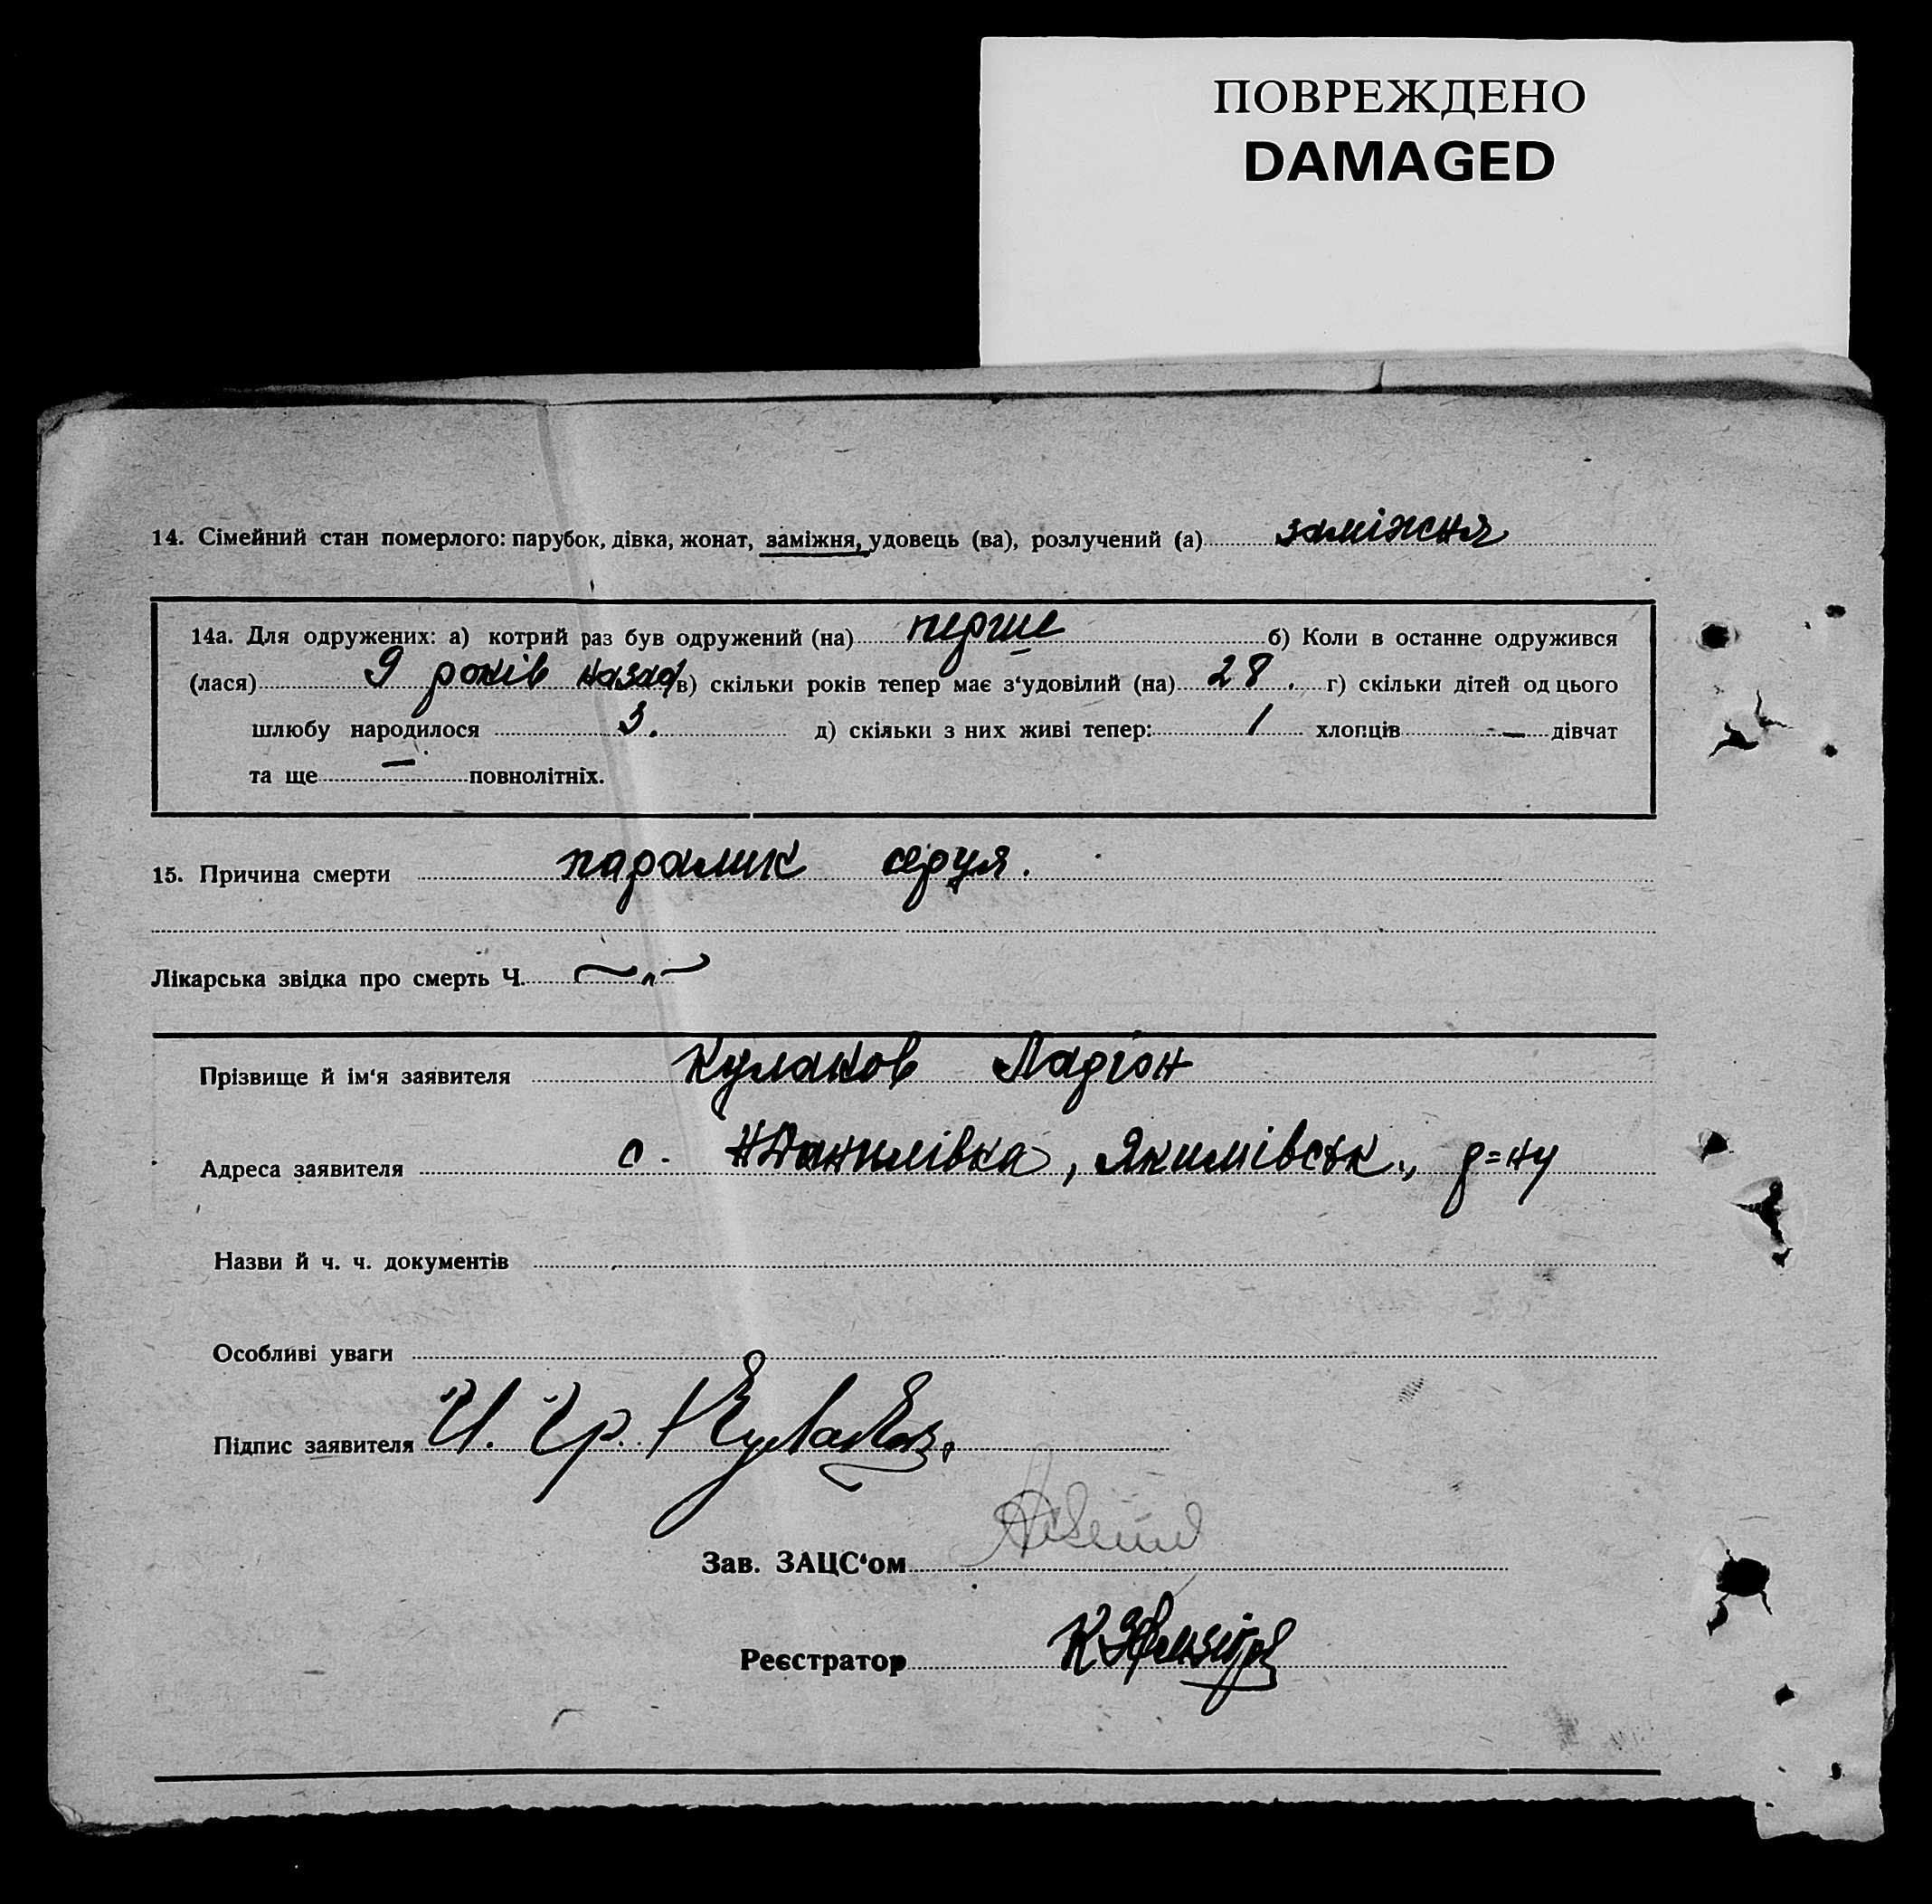 ПОВРЕЖДЕНО
DAMAGED
14. Сімейний стан померлого: парубок, дівка, жонат, заміжня, удовець (ва), розлучений (а) заміжня
14а. Для одружених: а) котрий раз був одружений (на) перше б) Коли в останне одружився
(лася) 9 років назад в) скільки років тепер має з‘удовілий (на) 28. г) скільки дітей од цього
шлюбу народилося 3. д) скільки з них живі тепер: 1 хлопців — дівчат
та ще — повнолітніх.
15. Причина смерти паралик серця.
Лікарська звідка про смерть Ч. ~ " ~
Прізвище й ім‘я заявителя Кулаков Ларіон
Адреса заявителя с. НДанилівка, Якимівськ., р=ну
Назви й ч. ч. документів
Особливі уваги
Підпис заявителя И. Гр. Кулаков.
Зав. ЗАЦС‘ом
Реєстратор